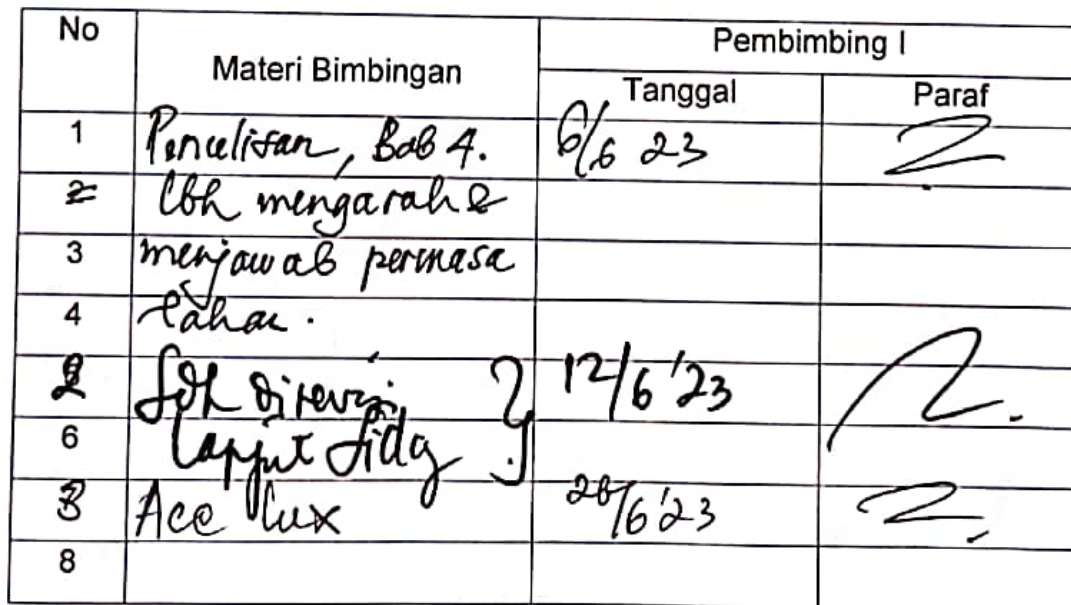 No Materi Bimbingan Pembimbing I
Tanggal Paraf
1 Penulisan, Bab 4. 6/6 23
2 lbh mengarah &
3 menjawab permasa
4 lahan.
2 Sdh direvisi 12/6 '23
6 lanjut sidg
3 Acc lux 26/6 '23
8